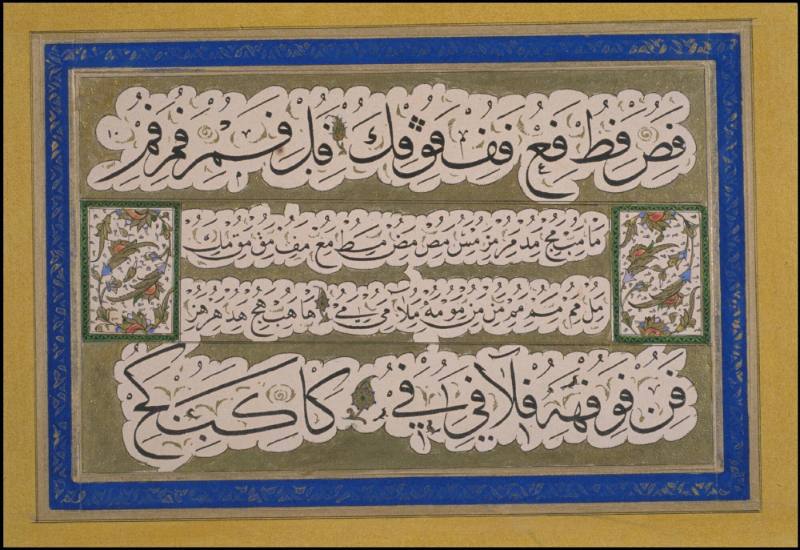 فص فط فع فف فق فك فل فم فم فم
ما مب مج مد مر مز مس مص مض مط مع مف مق مق مك
مل مم مم مم من من مو مه ملا مي مي ها هب هج هد هر هر
فن فو فه فلا في في كا كب كج